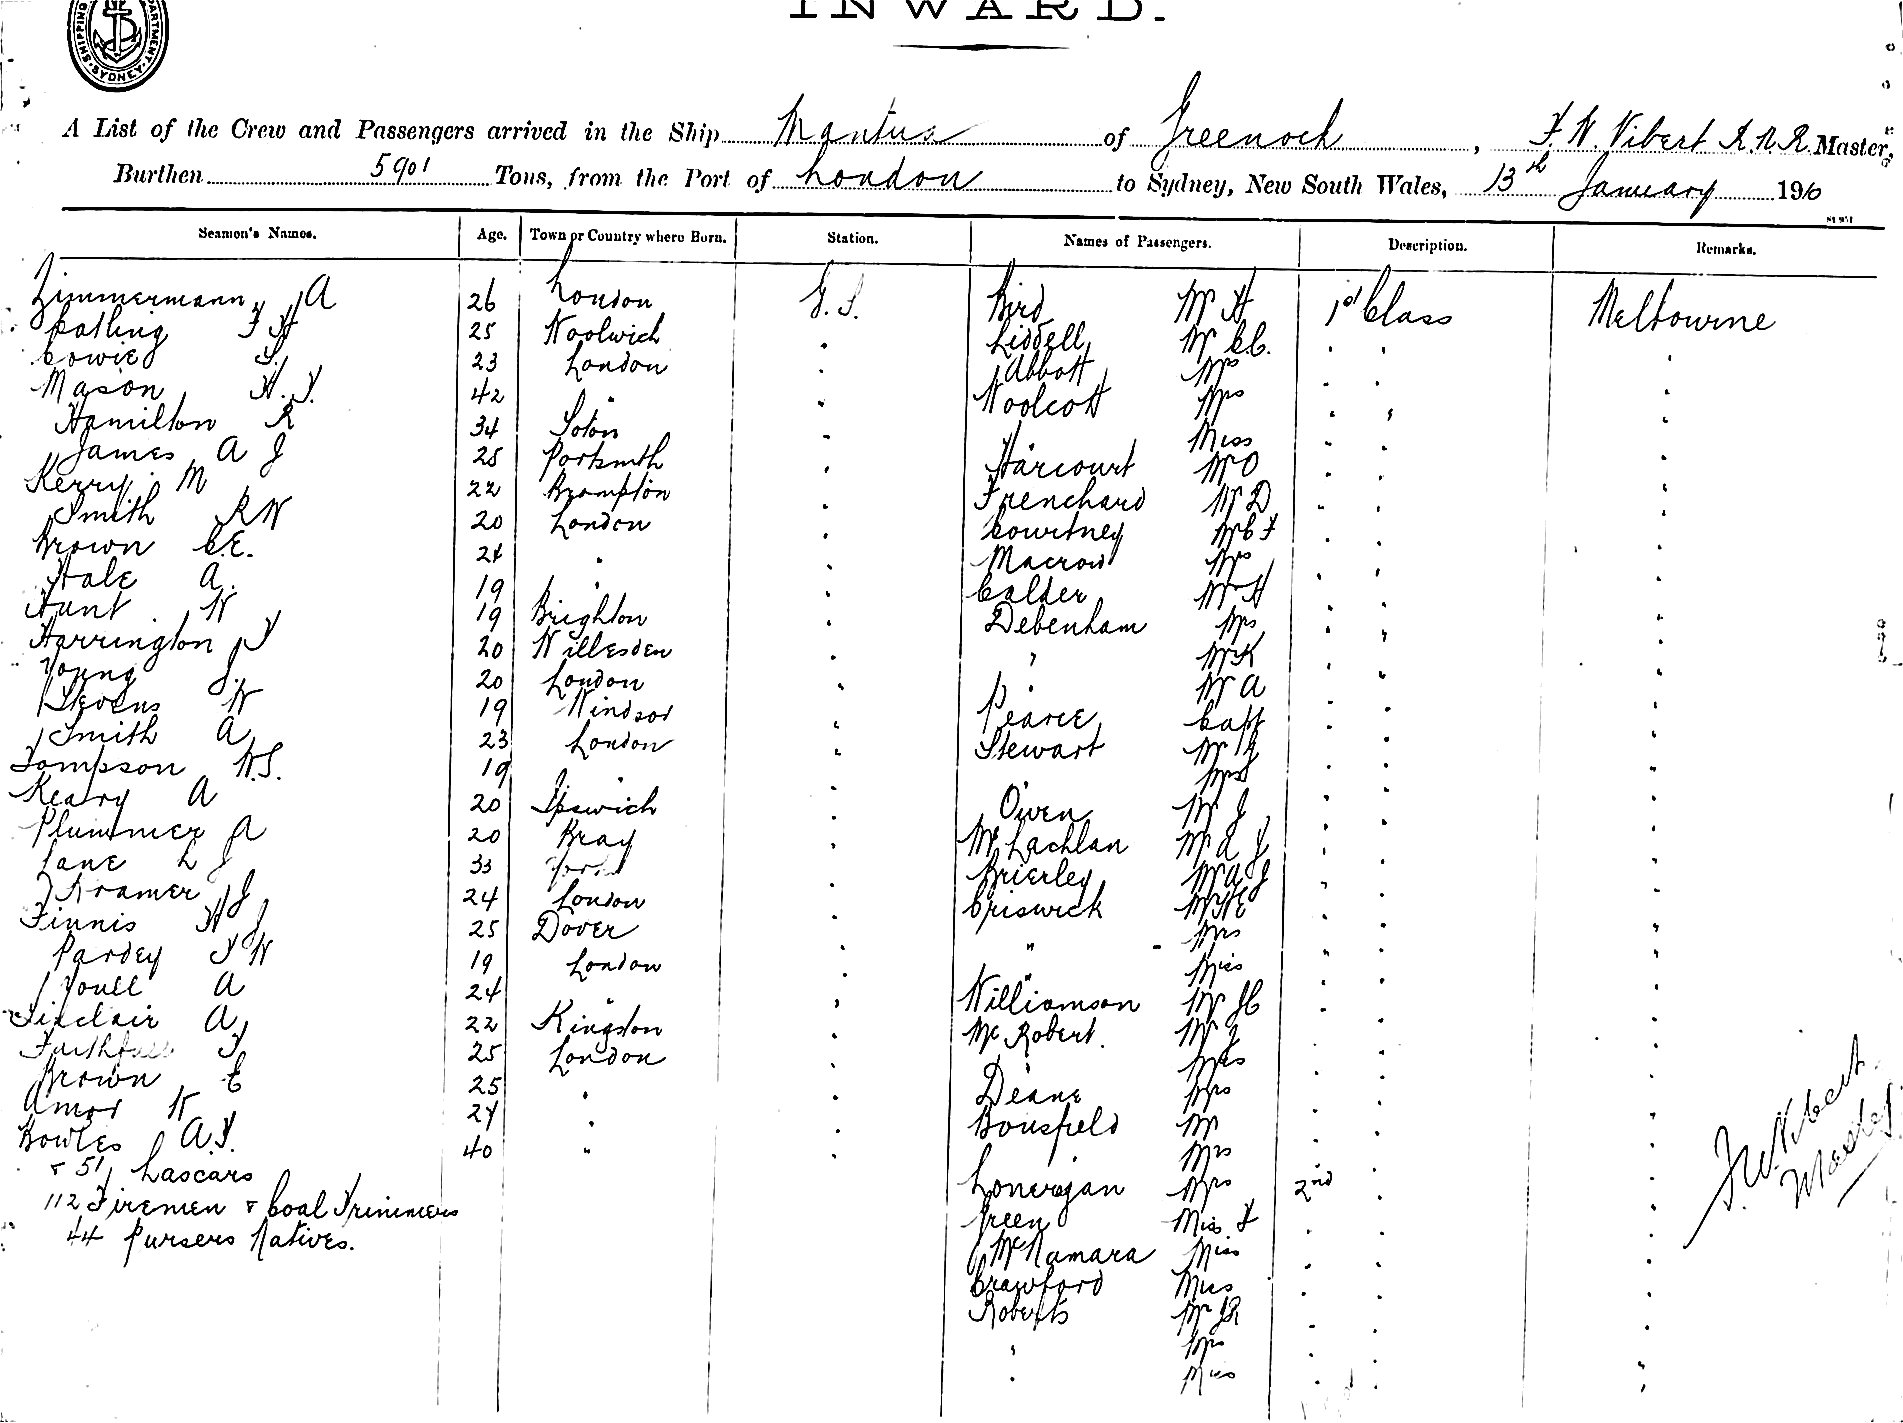 SHIPPING DEPARTMENT SYDNEY
INWARD.
A List of the Crew and Passengers arrived in the Ship Mantua of Greenock, F. W. Vibert R.N.R. Master,
Burthen 5901 Tons, from the Port of London to Sydney, New South Wales, 13th January 1910
Seamen's Names. Age. Town or Country where Born. Station. Names of Passengers. Description. Remarks.
Zimmermann A 26 London G.S. Bird Mr H 1st Class Melbourne
Catling F H 25 Woolwich " Liddell Mr C.C. " " "
Cowie S. 23 London " Abbott Mrs " "
Mason H.J. 42 " " Woolcott Mrs " " "
Hamilton R 34 Soton " Miss " " "
James A J 25 Portsmth " Harcourt Mr O " " "
Kerry M 22 Brompton " Trenchard Mr D " " "
Smith R W 20 London " Courtney Mr C F " " "
Brown C.E. 24 " " Macrow Mrs " " "
Hale A. 19 " " Calder Mr H " " "
Hunt W 19 Brighton " Debenham Mrs " " "
Harrington J 20 Willesden " " Mr K " " "
Young J. 20 London " " Mr A " " "
Stevens W 19 Windsor " Pearce Capt " " "
Smith A 23 London " Stewart Mr R " " "
Tompson W.S. 19 " " Mrs " " "
Keary A 20 Ipswich " Owen Mr J " " "
Plummer A 20 Bray " McLachlan Mr " " "
Lane L J 33 " Brierley Mr A J " " "
Kramer J 24 London " Criswick Mr " " "
Finnis H J 25 Dover " " Mrs " " "
Pardey J W 19 London " " Miss " " "
Youll A 24 " " Williamson Mr " " "
Sinclair A 22 Kingston " McRobert Mr J " " "
Faithfull F 25 London " " Mrs " " "
Brown E 25 " " Deane Mrs " " "
Amor W 27 " " Bousfield Mr " " "
Bowles A.J. 40 " " Mrs " " "
& 51 Lascars Lonergan Mrs 2nd " "
112 Firemen & Coal Trimmers Green Miss F " " "
44 Pursers Natives. McNamara Miss " " "
Crawford Miss " " "
Roberts Mr " " "
" Mrs " " "
" Miss " " "
F W Vibert
Master